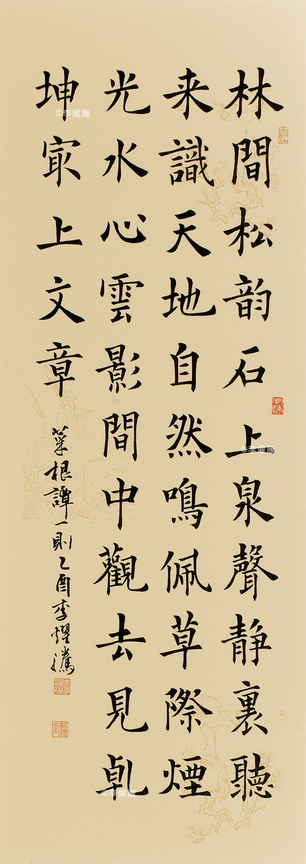 林間松韵石上泉聲靜裏聽
来識天地自然鳴佩草際煙
光水心雲影間中觀去見乹
坤㝡上文章
菜根譚一則乙酉李耀騰